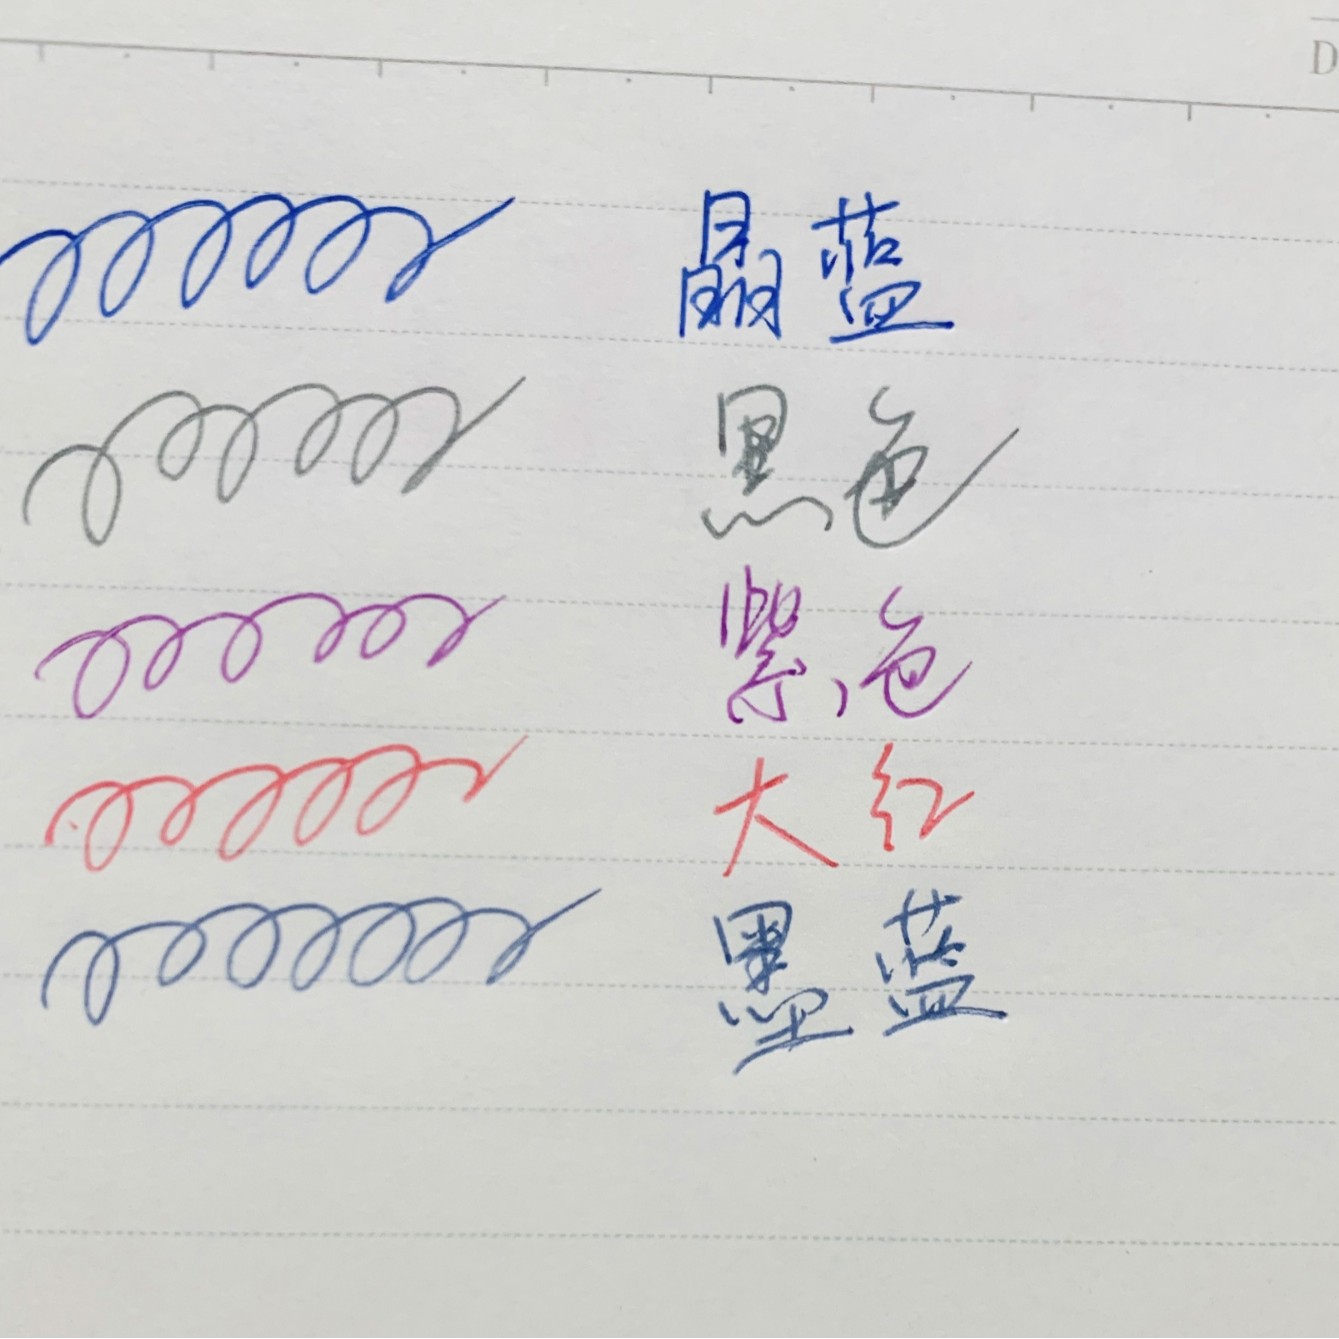 D
晶蓝
黑色
紫色
大红
墨蓝